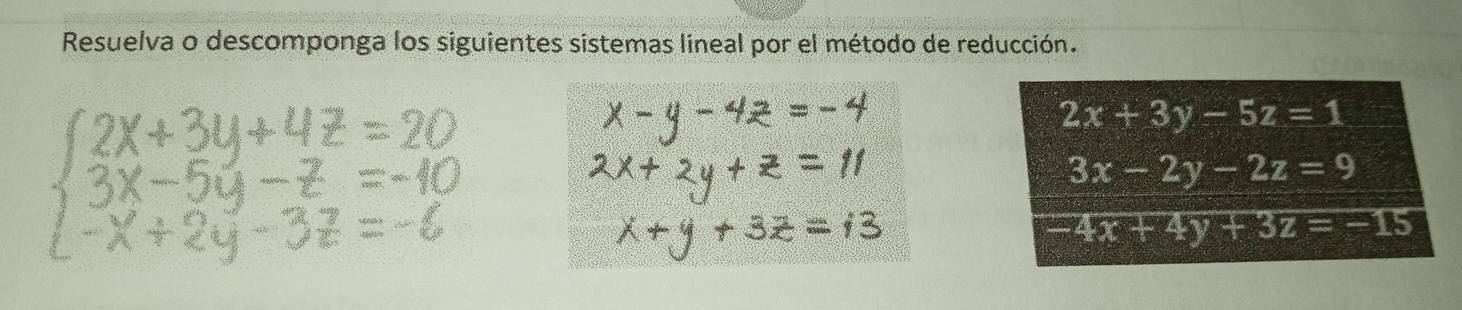 Resuelva o descomponga los siguientes sistemas lineal por el método de reducción.
2x + 3y + 4z = 20
3x - 5y - z = -10
-x + 2y - 3z = -6
x - y - 4z = -4
2x + 2y + z = 11
x + y + 3z = 13
2x + 3y - 5z = 1
3x - 2y - 2z = 9
-4x + 4y + 3z = -15